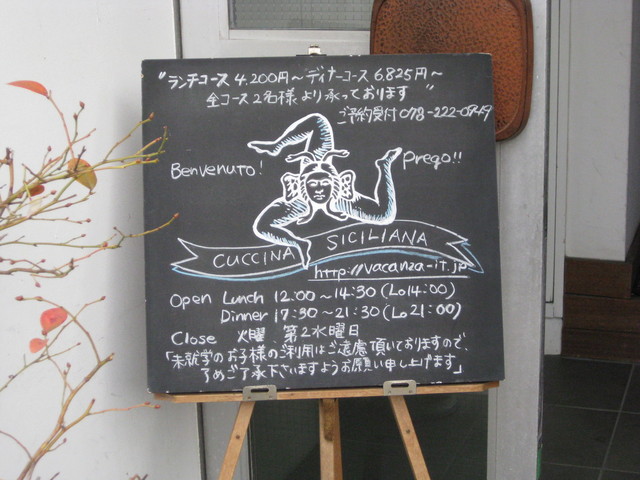 "ランチコース 4,200円〜ディナーコース 6,825円〜
全コース2名様より承っております"
ご予約受付 078-222-0749
Benvenuto!
Prego!!
CUCCINA SICILIANA
http://vacanza-it.jp
Open Lunch 12:00〜14:30(Lo14:00)
Dinner 17:30〜21:30(Lo21:00)
Close 火曜 第2水曜日
「未就学のお子様のご利用はご遠慮頂いておりますので、
予めご了承下さいますようお願い申し上げます」